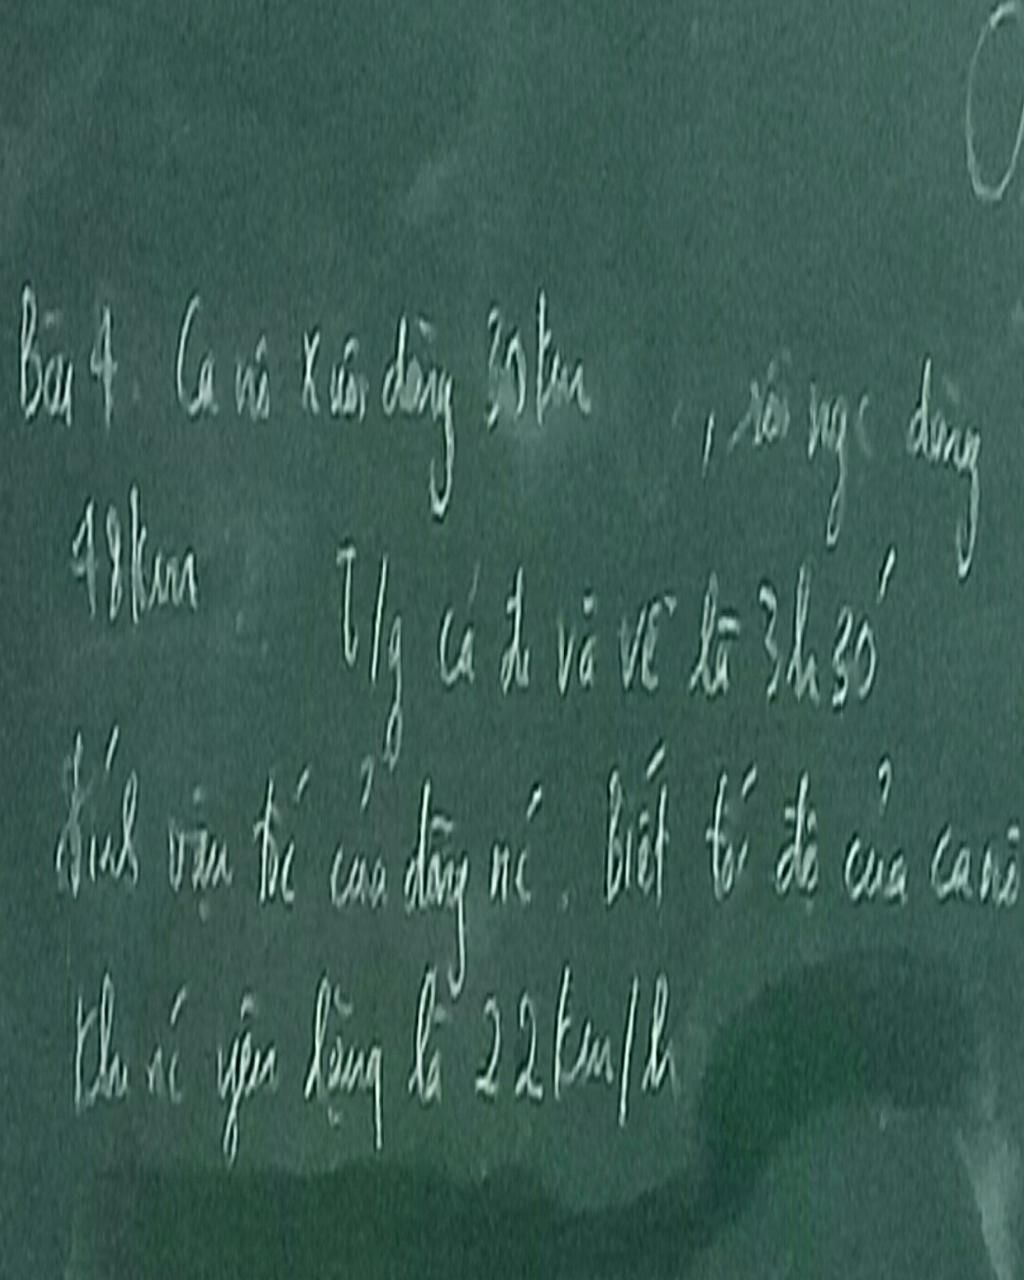 Bài 4. Ca nô Xuôi dòng 30km, rồi ngc dòng
48km. T/g cả đi và về là 3h30'
tính vận tốc của dòng nc. Biết tốc độ của ca nô
khi nc yên lặng là 22km/h